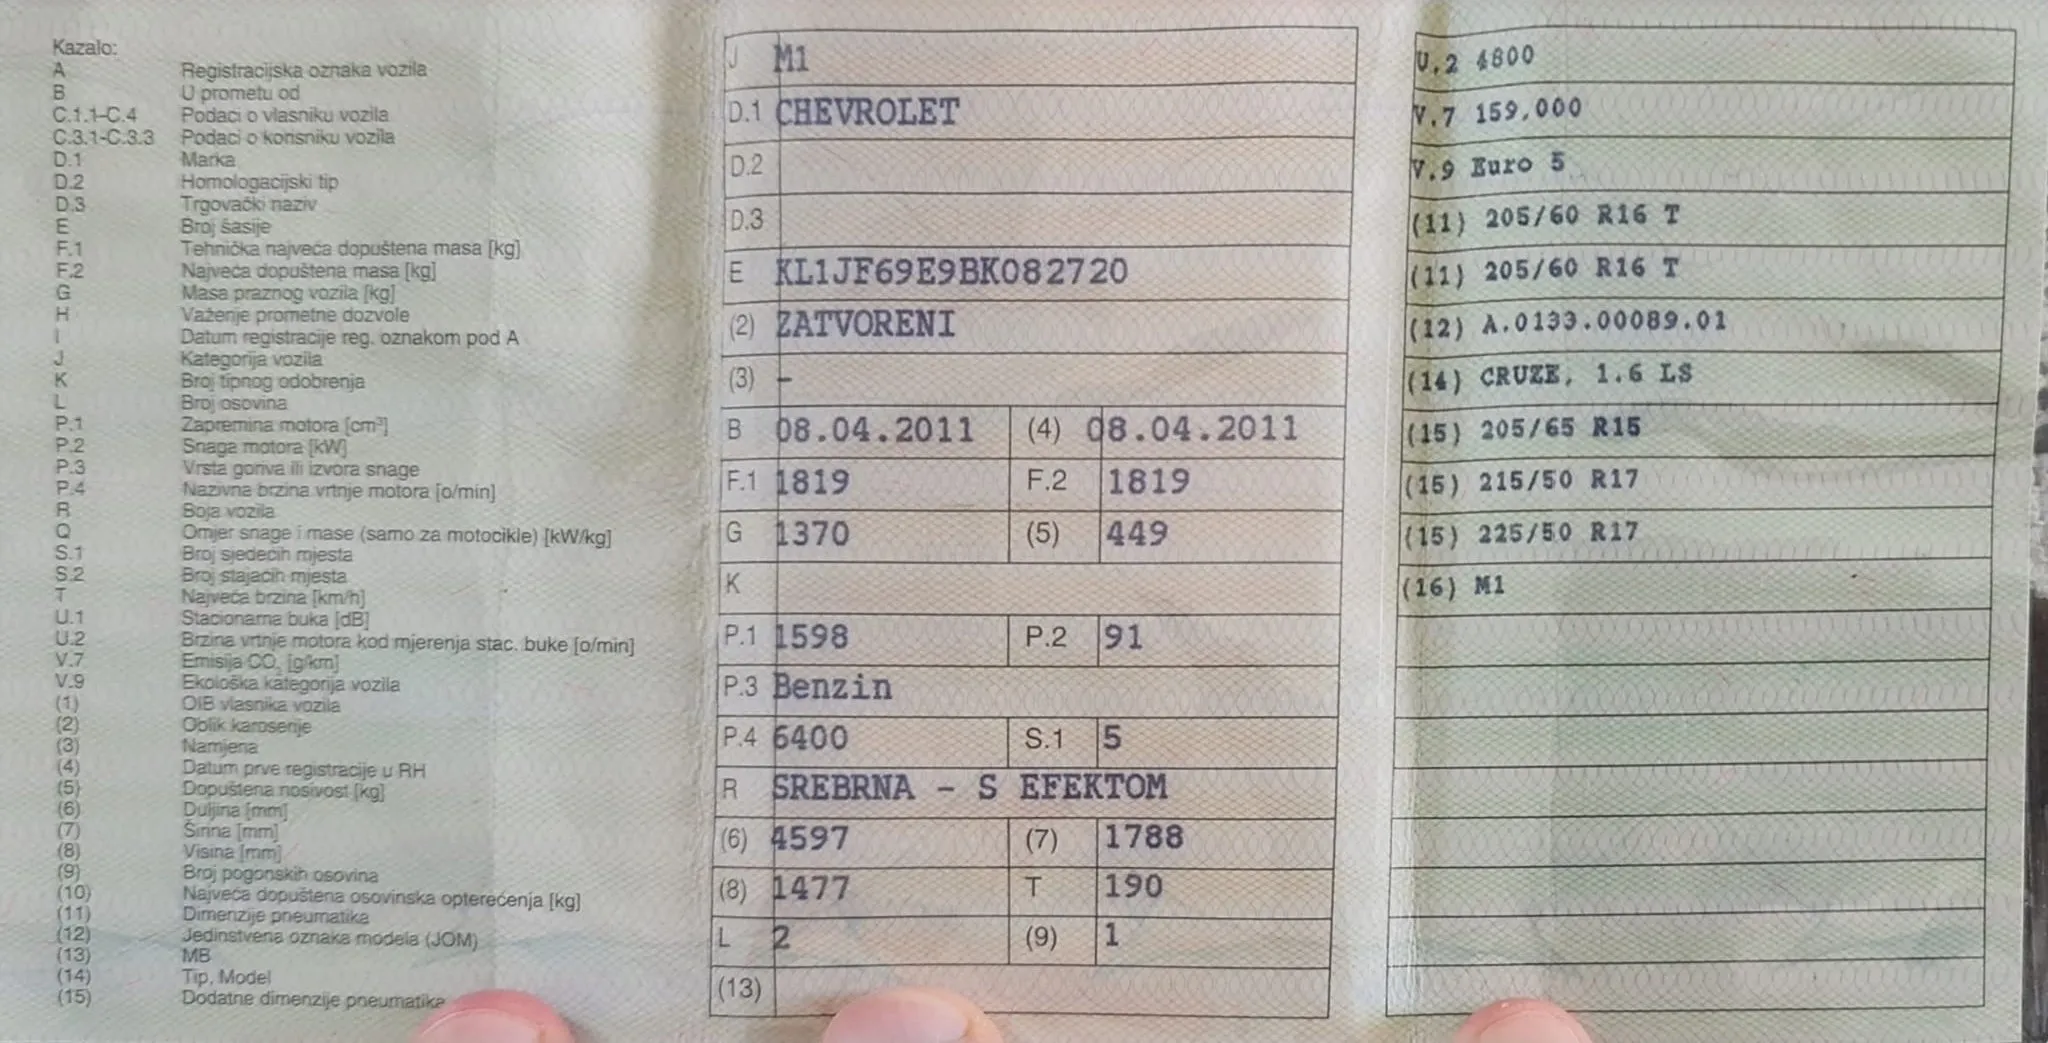 Kazalo:
A Registracijska oznaka vozila
B U prometu od
C.1.1-C.4 Podaci o vlasniku vozila
C.3.1-C.3.3 Podaci o korisniku vozila
D.1 Marka
D.2 Homologacijski tip
D.3 Trgovački naziv
E Broj šasije
F.1 Tehnička najveća dopuštena masa [kg]
F.2 Najveća dopuštena masa [kg]
G Masa praznog vozila [kg]
H Važenje prometne dozvole
I Datum registracije reg. oznakom pod A
J Kategorija vozila
K Broj tipnog odobrenja
L Broj osovina
P.1 Zapremina motora [cm³]
P.2 Snaga motora [kW]
P.3 Vrsta goriva ili izvora snage
P.4 Nazivna brzina vrtnje motora [o/min]
R Boja vozila
Q Omjer snage i mase (samo za motocikle) [kW/kg]
S.1 Broj sjedećih mjesta
S.2 Broj stajaćih mjesta
T Najveća brzina [km/h]
U.1 Stacionarna buka [dB]
U.2 Brzina vrtnje motora kod mjerenja stac. buke [o/min]
V.7 Emisija CO₂ [g/km]
V.9 Ekološka kategorija vozila
(1) OIB vlasnika vozila
(2) Oblik karoserije
(3) Namjena
(4) Datum prve registracije u RH
(5) Dopuštena nosivost [kg]
(6) Duljina [mm]
(7) Širina [mm]
(8) Visina [mm]
(9) Broj pogonskih osovina
(10) Najveća dopuštena osovinska opterećenja [kg]
(11) Dimenzije pneumatika
(12) Jedinstvena oznaka modela (JOM)
(13) MB
(14) Tip, Model
(15) Dodatne dimenzije pneumatika
J M1
D.1 CHEVROLET
D.2
D.3
E KL1JF69E9BK082720
(2) ZATVORENI
(3) -
B 08.04.2011 (4) 08.04.2011
F.1 1819 F.2 1819
G 1370 (5) 449
K
P.1 1598 P.2 91
P.3 Benzin
P.4 6400 S.1 5
R SREBRNA - S EFEKTOM
(6) 4597 (7) 1788
(8) 1477 T 190
L 2 (9) 1
(13)
U.2 4800
V.7 159,000
V.9 Euro 5
(11) 205/60 R16 T
(11) 205/60 R16 T
(12) A.0133.00089.01
(14) CRUZE, 1.6 LS
(15) 205/65 R15
(15) 215/50 R17
(15) 225/50 R17
(16) M1